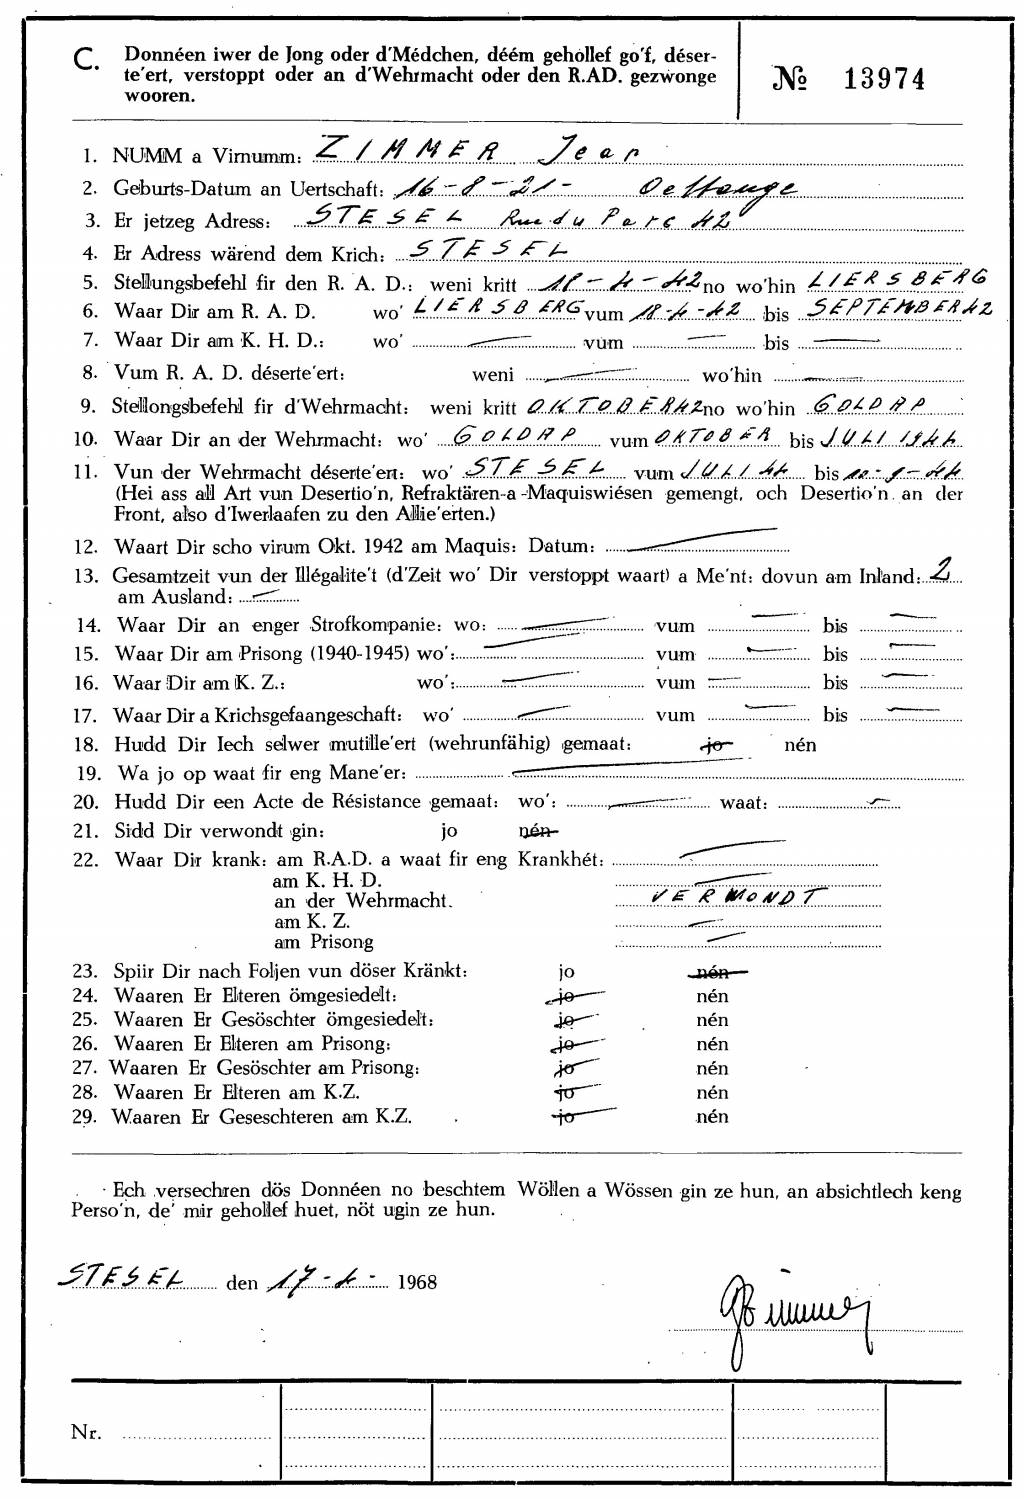 C. Donnéen iwer de Jong oder d'Médchen, déém gehollef go'f, déser-
te'ert, verstoppt oder an d'Wehrmacht oder den R.AD. gezwonge
wooren.
№ 13974
1. NUMM a Virnumm: ZIMMER Jean
2. Geburts-Datum an Uertschaft: 16-8-21- Oettange
3. Er jetzeg Adress: STESEL Rue du Parc 42
4. Er Adress wärend dem Krich: STESEL
5. Stellungsbefehl fir den R. A. D.: weni kritt 18-4-42 no wo'hin LIERSBERG
6. Waar Dir am R. A. D. wo' LIERSBERG vum 18-4-42 bis SEPTEMBER 42
7. Waar Dir am K. H. D.: wo' vum bis
8. Vum R. A. D. déserte'ert: weni wo'hin
9. Stellongsbefehl fir d'Wehrmacht: weni kritt OKTOBER 42 no wo'hin GOLDAP
10. Waar Dir an der Wehrmacht: wo' GOLDAP vum OKTOBER bis JULI 1944
11. Vun der Wehrmacht déserte'ert: wo' STESEL vum JULI 44 bis 10-9-44
(Hei ass all Art vun Desertio'n, Refraktären-a -Maquiswiésen gemengt, och Desertio'n an der
Front, also d'Iwerlaafen zu den Allie'erten.)
12. Waart Dir scho virum Okt. 1942 am Maquis: Datum:
13. Gesamtzeit vun der Illégalite't (d'Zeit wo' Dir verstoppt waart) a Me'nt: dovun am Inland: 2
am Ausland:
14. Waar Dir an enger Strofkompanie: wo: vum bis
15. Waar Dir am Prisong (1940-1945) wo': vum bis
16. Waar Dir am K. Z.: wo': vum bis
17. Waar Dir a Krichsgefaangeschaft: wo' vum bis
18. Hudd Dir Iech selwer mutille'ert (wehrunfähig) gemaat: jo nén
19. Wa jo op waat fir eng Mane'er:
20. Hudd Dir een Acte de Résistance gemaat: wo': waat:
21. Sidd Dir verwondt gin: jo nén
22. Waar Dir krank: am R.A.D. a waat fir eng Krankhét:
am K. H. D.
an der Wehrmacht. VERWONDT
am K. Z.
am Prisong
23. Spiir Dir nach Foljen vun döser Kränkt: jo nén
24. Waaren Er Elteren ömgesiedelt: jo nén
25. Waaren Er Gesöschter ömgesiedelt: jo nén
26. Waaren Er Elteren am Prisong: jo nén
27. Waaren Er Gesöschter am Prisong: jo nén
28. Waaren Er Elteren am K.Z. jo nén
29. Waaren Er Geseschteren am K.Z. jo nén
Ech versechren dös Donnéen no beschtem Wöllen a Wössen gin ze hun, an absichtlech keng
Perso'n, de' mir gehollef huet, nöt ugin ze hun.
STESEL den 17-4- 1968
Nr.